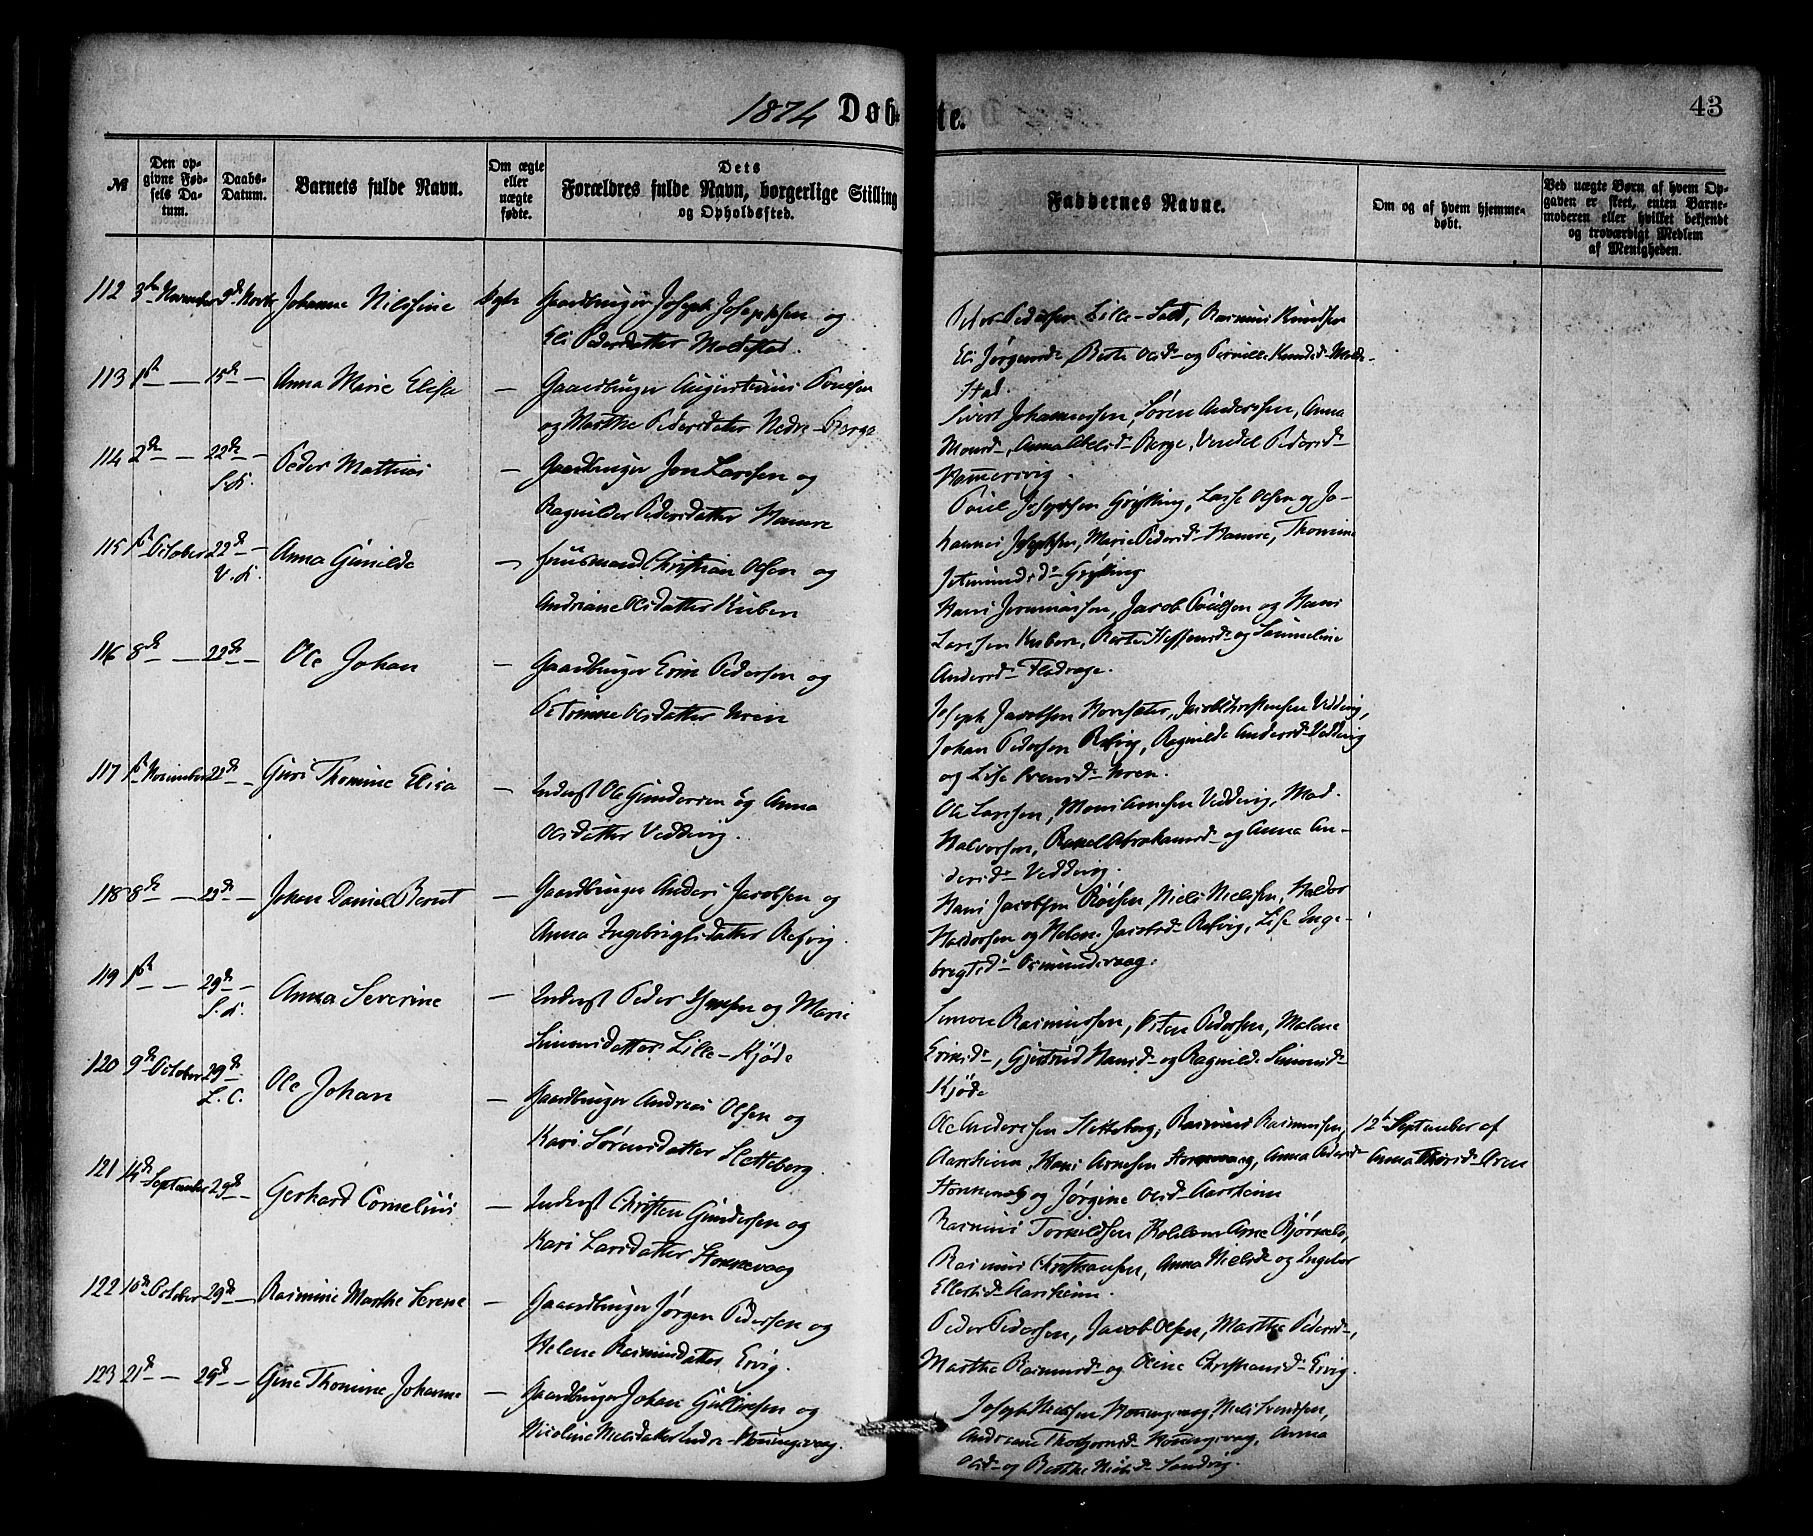 1874 Døb-
te.
43
№
Den op-
givne Fød-
sels Da-
tum.
Daabs-
Datum.
Barnets fulde Navn.
Om ægte
eller
uægte
fødte.
Dets
Forældres fulde Navn, borgerlige Stilling
og Opholdssted.
Faddernes Navne.
Om og af hvem hjemme-
døbt.
Ved uægte Børn af hvem Op-
gaven er skeet, enten Barne-
moderen eller hvilket bekjendt
og troværdigt Medlem
af Menigheden.
112 3die November 9de Novbr Johanne Nilssine Ægte Gaardbruger Joseph Josephsen og
Eli Pedersdatter Moldestad.
Peder Pedersen Lille-Sæt, Rasmus Knudsen
Eli Jørgensd. Berte Olsd. og Pernille Knudsd. Molde-
stad.
113 1ste — 15de — Anna Marie Elisa — Gaardbruger Augustinus Poulsen
og Marthe Pedersdatter Nedre-Berge
Sivert Johannessen, Søren Anderssen, Anna
Monsd., Anna Abelsd. Berge, Vendel Pedersd.
Hamersvig.
114 2de — 22de — Peder Mathias — Gaardbruger Jon Larssen og
S.K.
Ragnilde Pedersdatter Hamre
Poul Josephsen Grytting, Lasse Olsen og Jo-
hannes Josephsen, Marie Pedersd. Hamre, Thomine
Jetmundsd. Grytting
115 1ste October 22de — Anna Gunilde — Huusmand Christian Olsen og
V.K.
Andriane Olsdatter Kuben
Hans Jeremiassen, Jacob Poulsen og Hans
Larssen Kuben, Berte Steffensd. og Samueline
Andersd. Fladrage.
116 8de — 22de — Ole Johan — Gaardbruger Erik Pedersen og
Petrine Olsdatter Hren
Joseph Jacobsen Horsæter, Jacob Christensen Vedvig,
Johan Pedersen Refvig, Ragnilde Andersd. Vedvig
og Lise Iversd. Hren.
117 1ste November 22de — Guri Thomine Elisa — Inderst Ole Gundersen og Anna
Olsdatter Vedvig.
Ole Larssen, Mons Arnesen Vedvig, Mad.
Halvorsen, Rakel Abrahamsd. og Anna An-
dersd. Vedvig.
118 8de — 22de — Johan Daniel Bernt — Gaardbruger Anders Jacobsen og
Anna Ingebrigtsdatter Refvig.
Hans Jacobsen Røisen, Niels Nielssen, Haldor
Haldorsen og Helene Jacobsd. Refvig, Lise Inge-
brigtsd. Osmundsvaag.
119 1ste — 29de — Anna Severine — Inderst Peder Hansen og Marie
S.K.
Simonsdatter Lille-Kjøde
Simon Rasmussen, Osten Pedersen, Malene
Eriksd., Gjertrud Hansd. og Ragnilde Simonsd.
Kjøde
120 9de October 29de Ole Johan — Gaardbruger Andreas Olsen og
L.C.
Kari Sørensdatter Hetteberg.
Ole Andersen Hetteberg, Rasmus Rasmussen,
Aarsheim, Hans Arnesen Honnevaag, Anna Pedersd.
og Jørgine Olsd. Aarsheim
121 14de September 29de — Gerhard Cornelius — Inderst Christen Gundersen og
Kari Larsdatter Honnevaag
Rasmus Torkildsen, Anne Bjørkelo,
Rasmus Christiansen, Anna Nielsd. og Ingebor
Ellertsd. Aarsheim.
12te September af
Anna Thoresd.
122 10de October 29de — Rasmine Marthe Serene — Gaardbruger Jørgen Pedersen og
Helene Rasmusdatter Ervig.
Peder Pedersen, Jacob Olsen, Marthe Pedersd.,
Marthe Rasmusd. og Oline Christiansd. Ervig.
123 21de — 29de — Gine Thomine Johanne — Gaardbruger Johan Gulliksen og
Nicoline Nielsdatter Indre-Honningsvaag.
Joseph Nielssen Honningsvaag, Niels Ivendsen,
Andreane Thorbjørnsd. Honningsvaag, Anna
Olsd. og Berthe Nielsd. Sandvig.